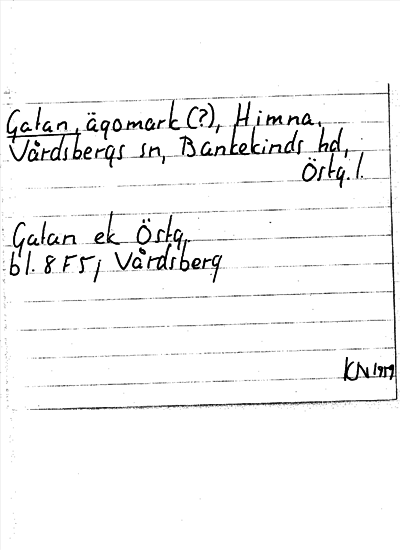 Gatan, ägomark (?), Himna,
Vårdsbergs sn, Bankekinds hd,
Östg. l.
Gatan ek Östg.
bl. 8 F5, Vårdsberg
KN 1959